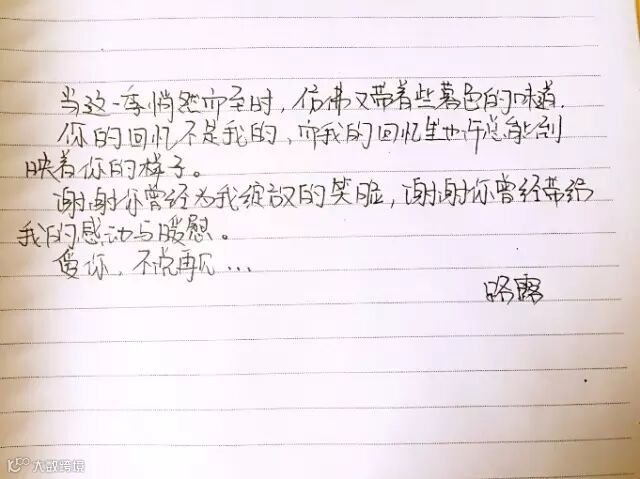 当这一季悄然而至时，仿佛又带着些暮色的味道.
你的回忆不是我的，而我的回忆里也许总能倒
映着你的样子。
谢谢你曾经为我绽放的笑脸，谢谢你曾经带给
我的感动与暖慰。
爱你，不说再见...
路露
大数跨境